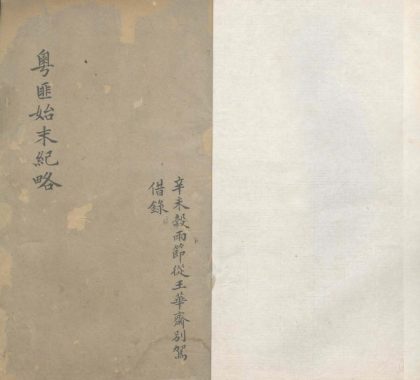 粵匪始末紀略
辛未穀雨節從王華齋別駕
借錄